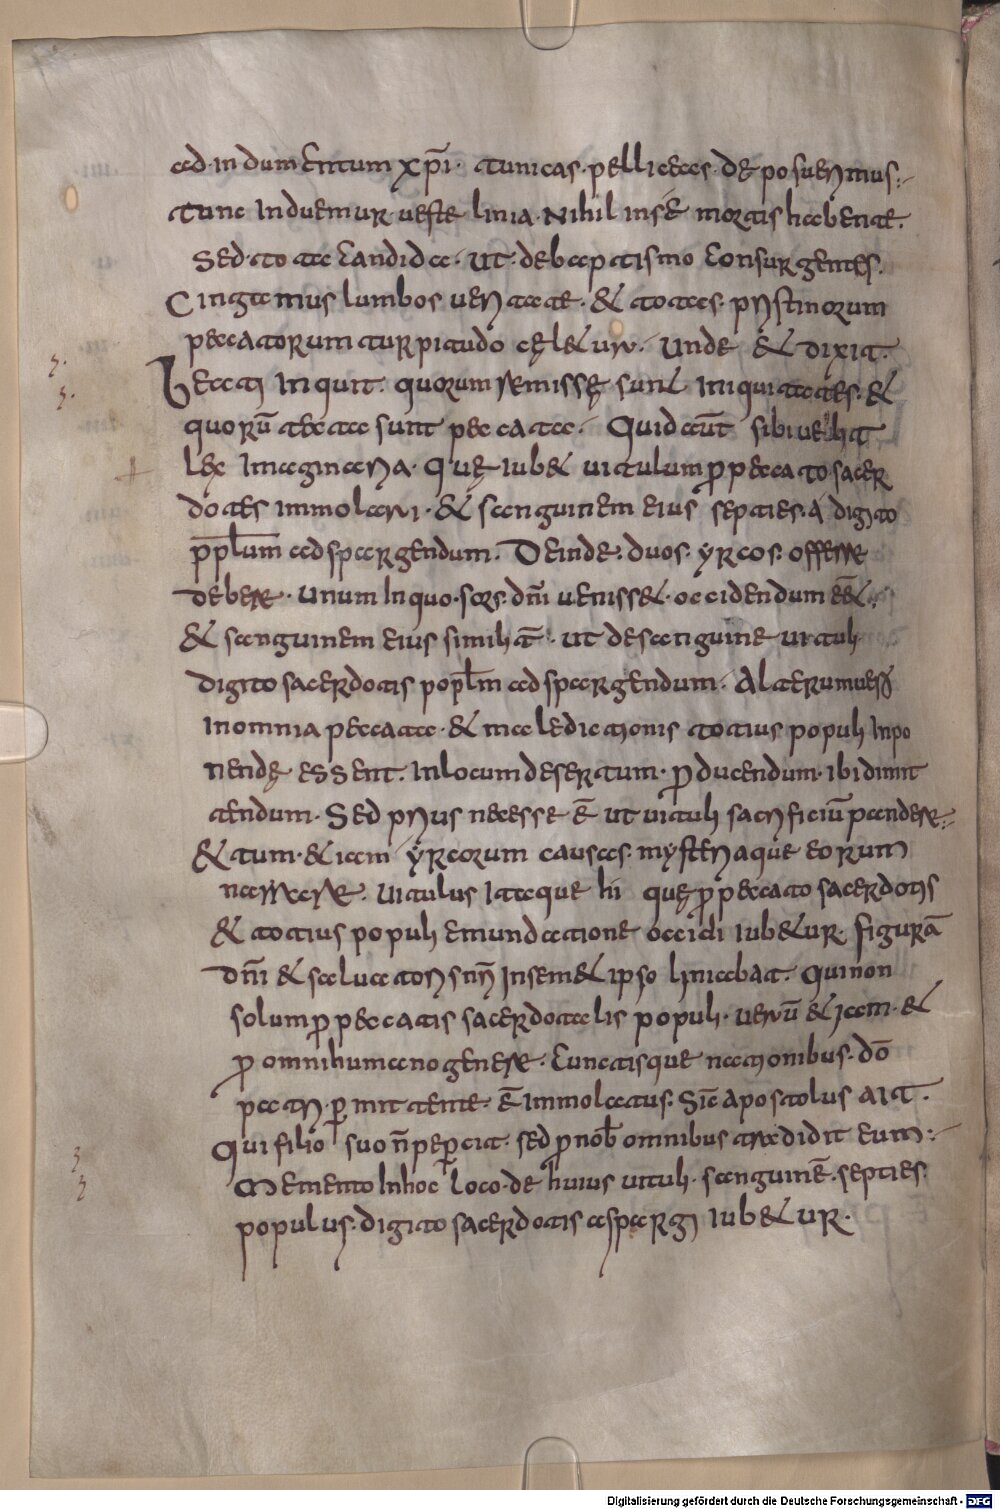 ad·indumentum xp̄i· tunicas·pelliceas·deposuerimus:
tunc induemur ueste linia·Nihil inse mortis habente.
Sed·tota candida·Ut·debaptismo consurgentes.
Cingamus lumbos ueritate·& totas·pristinorum
peccatorum turpitudo cęl&ur· Unde & dixit.
Beati inquit· quorum remissę sunt iniquitates·&
quorū tecta sunt peccata· Quid aūt sibi uelit
lex imaginaria· Quę iub& uitulum ꝓ peccato sacer
dotes immolari·& sanguinem eius septies·a digito
ppl̄um adspargendum· Deinde·duos·yrcos·offerre
debere·unum Inquo·sors·dn̄i ueniss&·occidendum ee͞·
& sanguinem eius similit̄·ut desanguine uituli
digito sacerdotis popl̄m adspargendum· Alterum uero
inomnia peccata·& maledictionis totius populi inpo
nendę essent· Inlocum desertum·ꝓducendum·ibi dimit
tendum· Sed prius necesse ē ut uituli sacrificiū pandere·
& tum·&iam yrcorum causas·mysteriaque eorum
narrare· Uitulus itaque hi quę ꝓ peccato sacerdotis
& totius populi emundatione occidi iub&ur· figurā
dn̄i & saluatoris nr̄i insem&ipso liniabat· Qui non
solum ꝓ peccatis sacerdotalis populi·uerū &iam·&
ꝓ omni humano genere·Cunctisque nationibus·dō
patri·ꝑmittente·ē immolatus· Sic̄ apostolus ait·
Qui filio suo n̄ peꝑcit· sed ꝓ nob̄ omnibus tradidit eum:
Memento Inhoc loco·de huius uituli·sanguinē·septies·
populus·digito sacerdotis aspargi iub&ur·
Digitalisierung gefördert durch die Deutsche Forschungsgemeinschaft - DFG